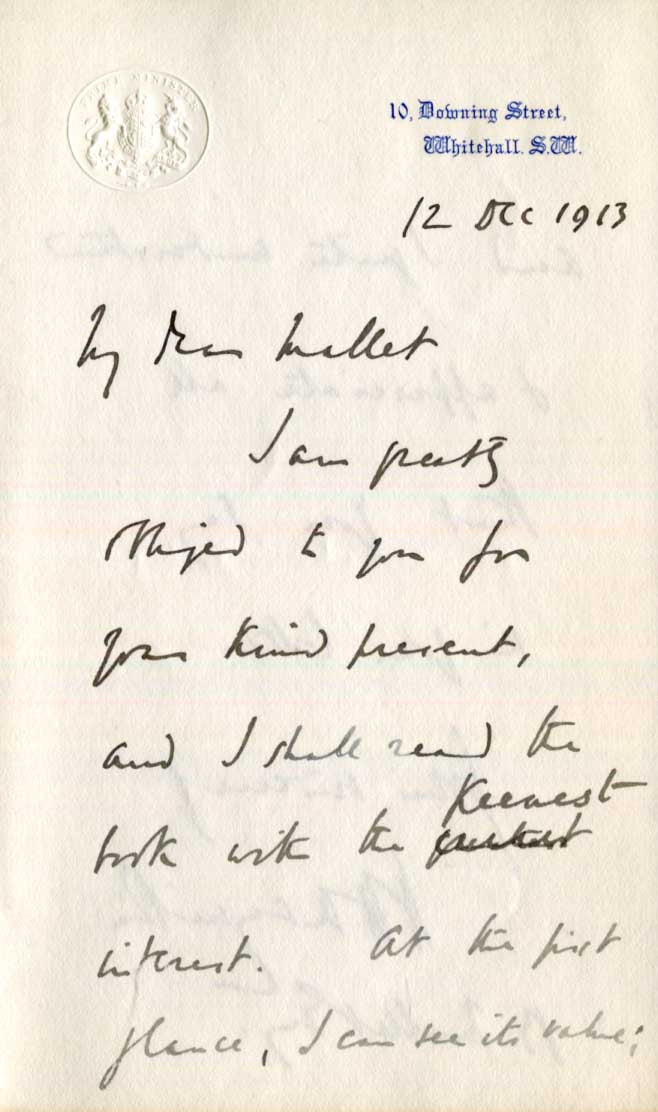 PRIME MINISTER
10, Downing Street,
Whitehall. S.W.
12 Dec 1913
My dear Mallet
I am greatly
obliged to you for
your kind present,
and I shall read the
keenest
book with the greatest
interest. At the first
glance, I can see its value;